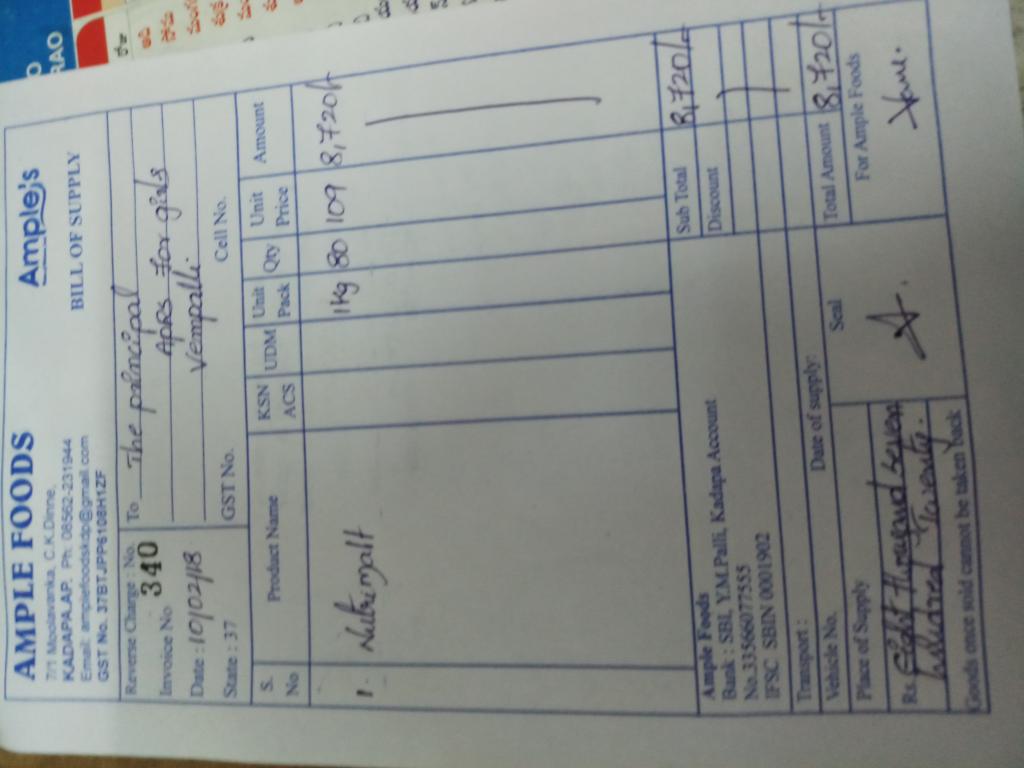 AMPLE FOODS
Ample's
7/1 Moolavanka, C.K.Dinne,
KADAPA.AP. Ph: 08562-231944
Email: amplefoodskdp@gmail.com
GST No. 37BTJPP6108H1ZF
BILL OF SUPPLY
Reverse Charge : No.
340
Invoice No
Date : 10/02/18
State : 37
To The principal
APRS for girls
Vempalli
GST No. Cell No.
S. No Product Name KSN ACS UDM Unit Pack Qty Unit Price Amount
1. Nutrimalt 1kg 80 109 8,720/-
Ample Foods
Bank : SBI, Y.M.Palli, Kadapa Account
No.33566077555
IFSC SBIN 0001902
Sub Total 8,720/-
Discount
Transport :
Vehicle No. Date of supply:
Total Amount 8,720/-
Place of Supply Seal For Ample Foods
Rs. Eight thousand Seven
hundred Twenty.
Goods once sold cannot be taken back
RAO